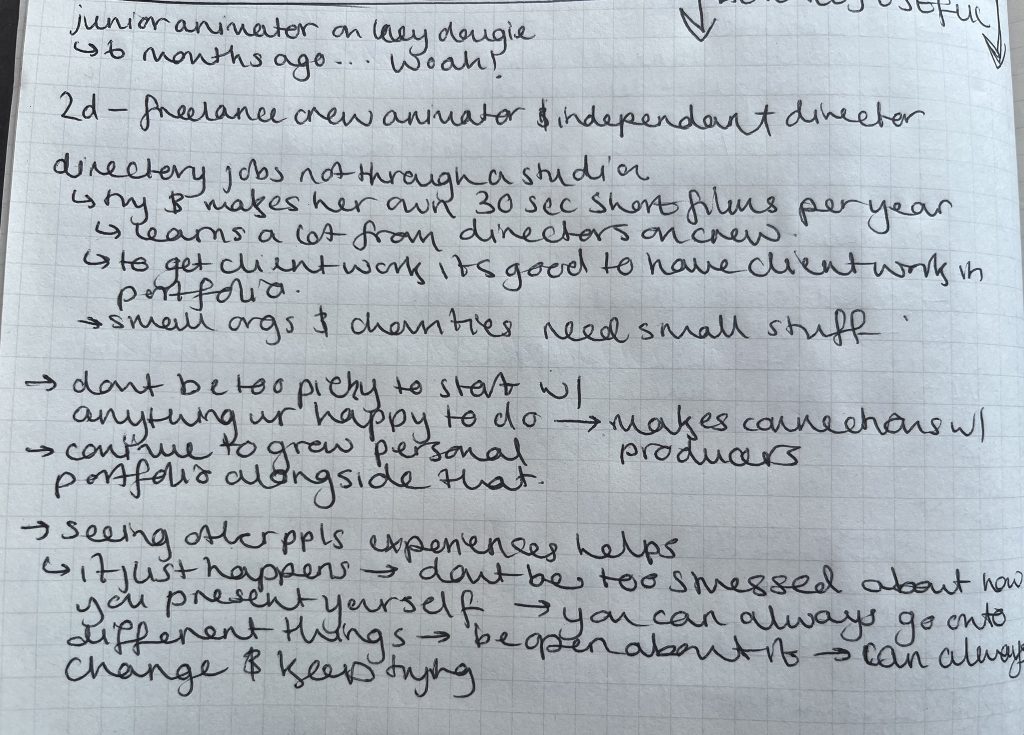 useful
junior animator on hey dougie
↳ 6 months ago... Woah!
2d – freelance crew animator & independant director
directery jobs not through a studio
↳ try & makes her own 30 sec short films per year
↳ learns a lot from directors on crew.
↳ to get client work its good to have client work in
portfolio.
→ small orgs & charities need small stuff
→ dont be too picky to start w/
anything ur happy to do → makes connections w/
producers
→ continue to grow personal
portfolio alongside that.
→ seeing other ppls experiences helps
↳ it just happens → dont be too stressed about how
you present yourself → you can always go onto
different things → be open about it → can always
change & keep trying